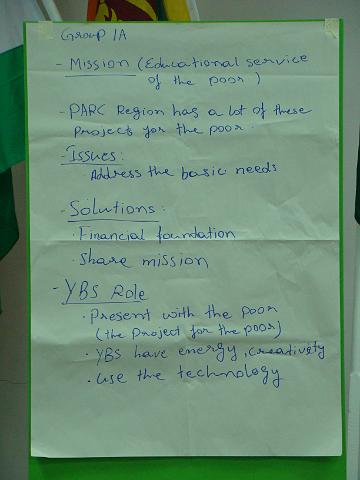 Group 1A
- Mission (Educational service
of the poor)
- PARC Region has a lot of these
projects for the poor.
- Issues:
· Address the basic needs
- Solutions:
· Financial foundation
· Share mission
- YBS Role
· Present with the poor
(the project for the poor)
· YBS have energy, creativity
· use the technology